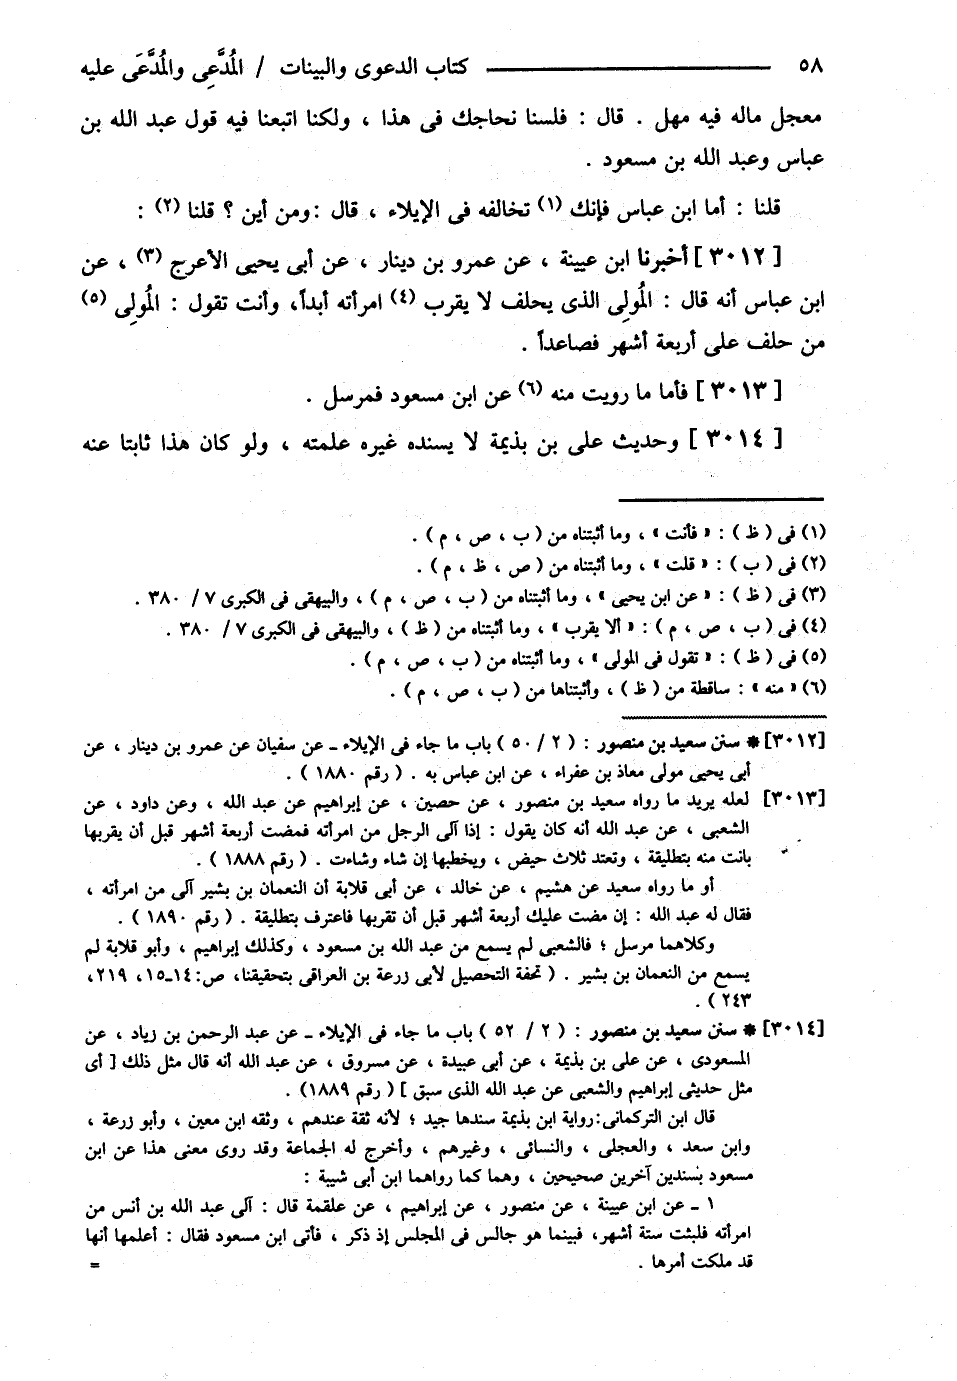 ٥٨ ـــــــــ كتاب الدعوى والبينات / المُدَّعِى والمُدَّعَى عليه
معجل ماله فيه مهل . قال : فلسنا نحاجك فى هذا ، ولكنا اتبعنا فيه قول عبد الله بن
عباس وعبد الله بن مسعود .
قلنا : أما ابن عباس فإنك (١) تخالفه فى الإيلاء ، قال :ومن أين ؟ قلنا (٢) :
[ ٣٠١٢ ] أخبرنا ابن عيينة ، عن عمرو بن دينار ، عن أبى يحيى الأعرج (٣) ، عن
ابن عباس أنه قال : المُولِى الذى يحلف لا يقرب (٤) امرأته أبداً، وأنت تقول : المُولِى (٥)
من حلف على أربعة أشهر فصاعداً .
[ ٣٠١٣ ] فأما ما رويت منه (٦) عن ابن مسعود فمرسل .
[ ٣٠١٤ ] وحديث على بن بذيمة لا يسنده غيره علمته ، ولو كان هذا ثابتا عنه
(١) فى ( ظ ) : « فأنت » ، وما أثبتناه من ( ب ، ص ، م ) .
(٢) فى ( ب ) : « قلت » ، وما أثبتناه من ( ص ، ظ ، م ) .
(٣) فى ( ظ ) : « عن ابن يحيى » ، وما أثبتناه من ( ب ، ص ، م ) ، والبيهقى فى الكبرى ٧ / ٣٨٠ .
(٤) فى ( ب ، ص ، م ) : « ألا يقرب » ، وما أثبتناه من ( ظ ) ، والبيهقى فى الكبرى ٧ / ٣٨٠ .
(٥) فى ( ظ ) : « تقول فى المولى » ، وما أثبتناه من ( ب ، ص ، م ) .
(٦) « منه » : ساقطة من ( ظ ) ، وأثبتناها من ( ب ، ص ، م ) .
[٣٠١٢] * سنن سعيد بن منصور : ( ٢ / ٥٠ ) باب ما جاء فى الإيلاء ـ عن سفيان عن عمرو بن دينار ، عن
أبى يحيى مولى معاذ بن عفراء ، عن ابن عباس به . ( رقم ١٨٨٠ ) .
[٣٠١٣] لعله يريد ما رواه سعيد بن منصور ، عن حصين ، عن إبراهيم عن عبد الله ، وعن داود ، عن
الشعبى ، عن عبد الله أنه كان يقول : إذا آلى الرجل من امرأته فمضت أربعة أشهر قبل أن يقربها
بانت منه بتطليقة ، وتعتد ثلاث حيض ، ويخطبها إن شاء وشاءت . ( رقم ١٨٨٨ ) .
أو ما رواه سعيد عن هشيم ، عن خالد ، عن أبى قلابة أن النعمان بن بشير آلى من امرأته ،
فقال له عبد الله : إن مضت عليك أربعة أشهر قبل أن تقربها فاعترف بتطليقة . ( رقم ١٨٩٠ ) .
وكلاهما مرسل ؛ فالشعبى لم يسمع من عبد الله بن مسعود ، وكذلك إبراهيم ، وأبو قلابة لم
يسمع من النعمان بن بشير . ( تحفة التحصيل لأبى زرعة بن العراقى بتحقيقنا، ص: ١٤ـ١٥، ٢١٩،
٢٤٣ ) .
[٣٠١٤] * سنن سعيد بن منصور : ( ٢ / ٥٢ ) باب ما جاء فى الإيلاء ـ عن عبد الرحمن بن زياد ، عن
المسعودى ، عن على بن بذيمة ، عن أبى عبيدة ، عن مسروق ، عن عبد الله أنه قال مثل ذلك [ أى
مثل حديثى إبراهيم والشعبى عن عبد الله الذى سبق ] ( رقم ١٨٨٩) .
قال ابن التركمانى: رواية ابن بذيمة سندها جيد ؛ لأنه ثقة عندهم ، وثقه ابن معين ، وأبو زرعة ،
وابن سعد ، والعجلى ، والنسائى ، وغيرهم ، وأخرج له الجماعة وقد روى معنى هذا عن ابن
مسعود بسندين آخرين صحيحين ، وهما كما رواهما ابن أبى شيبة :
١ ـ عن ابن عيينة ، عن منصور ، عن إبراهيم ، عن علقمة قال : آلى عبد الله بن أنس من
امرأته فلبثت ستة أشهر، فبينما هو جالس فى المجلس إذ ذكر ، فأتى ابن مسعود فقال : أعلمها أنها
قد ملكت أمرها . =